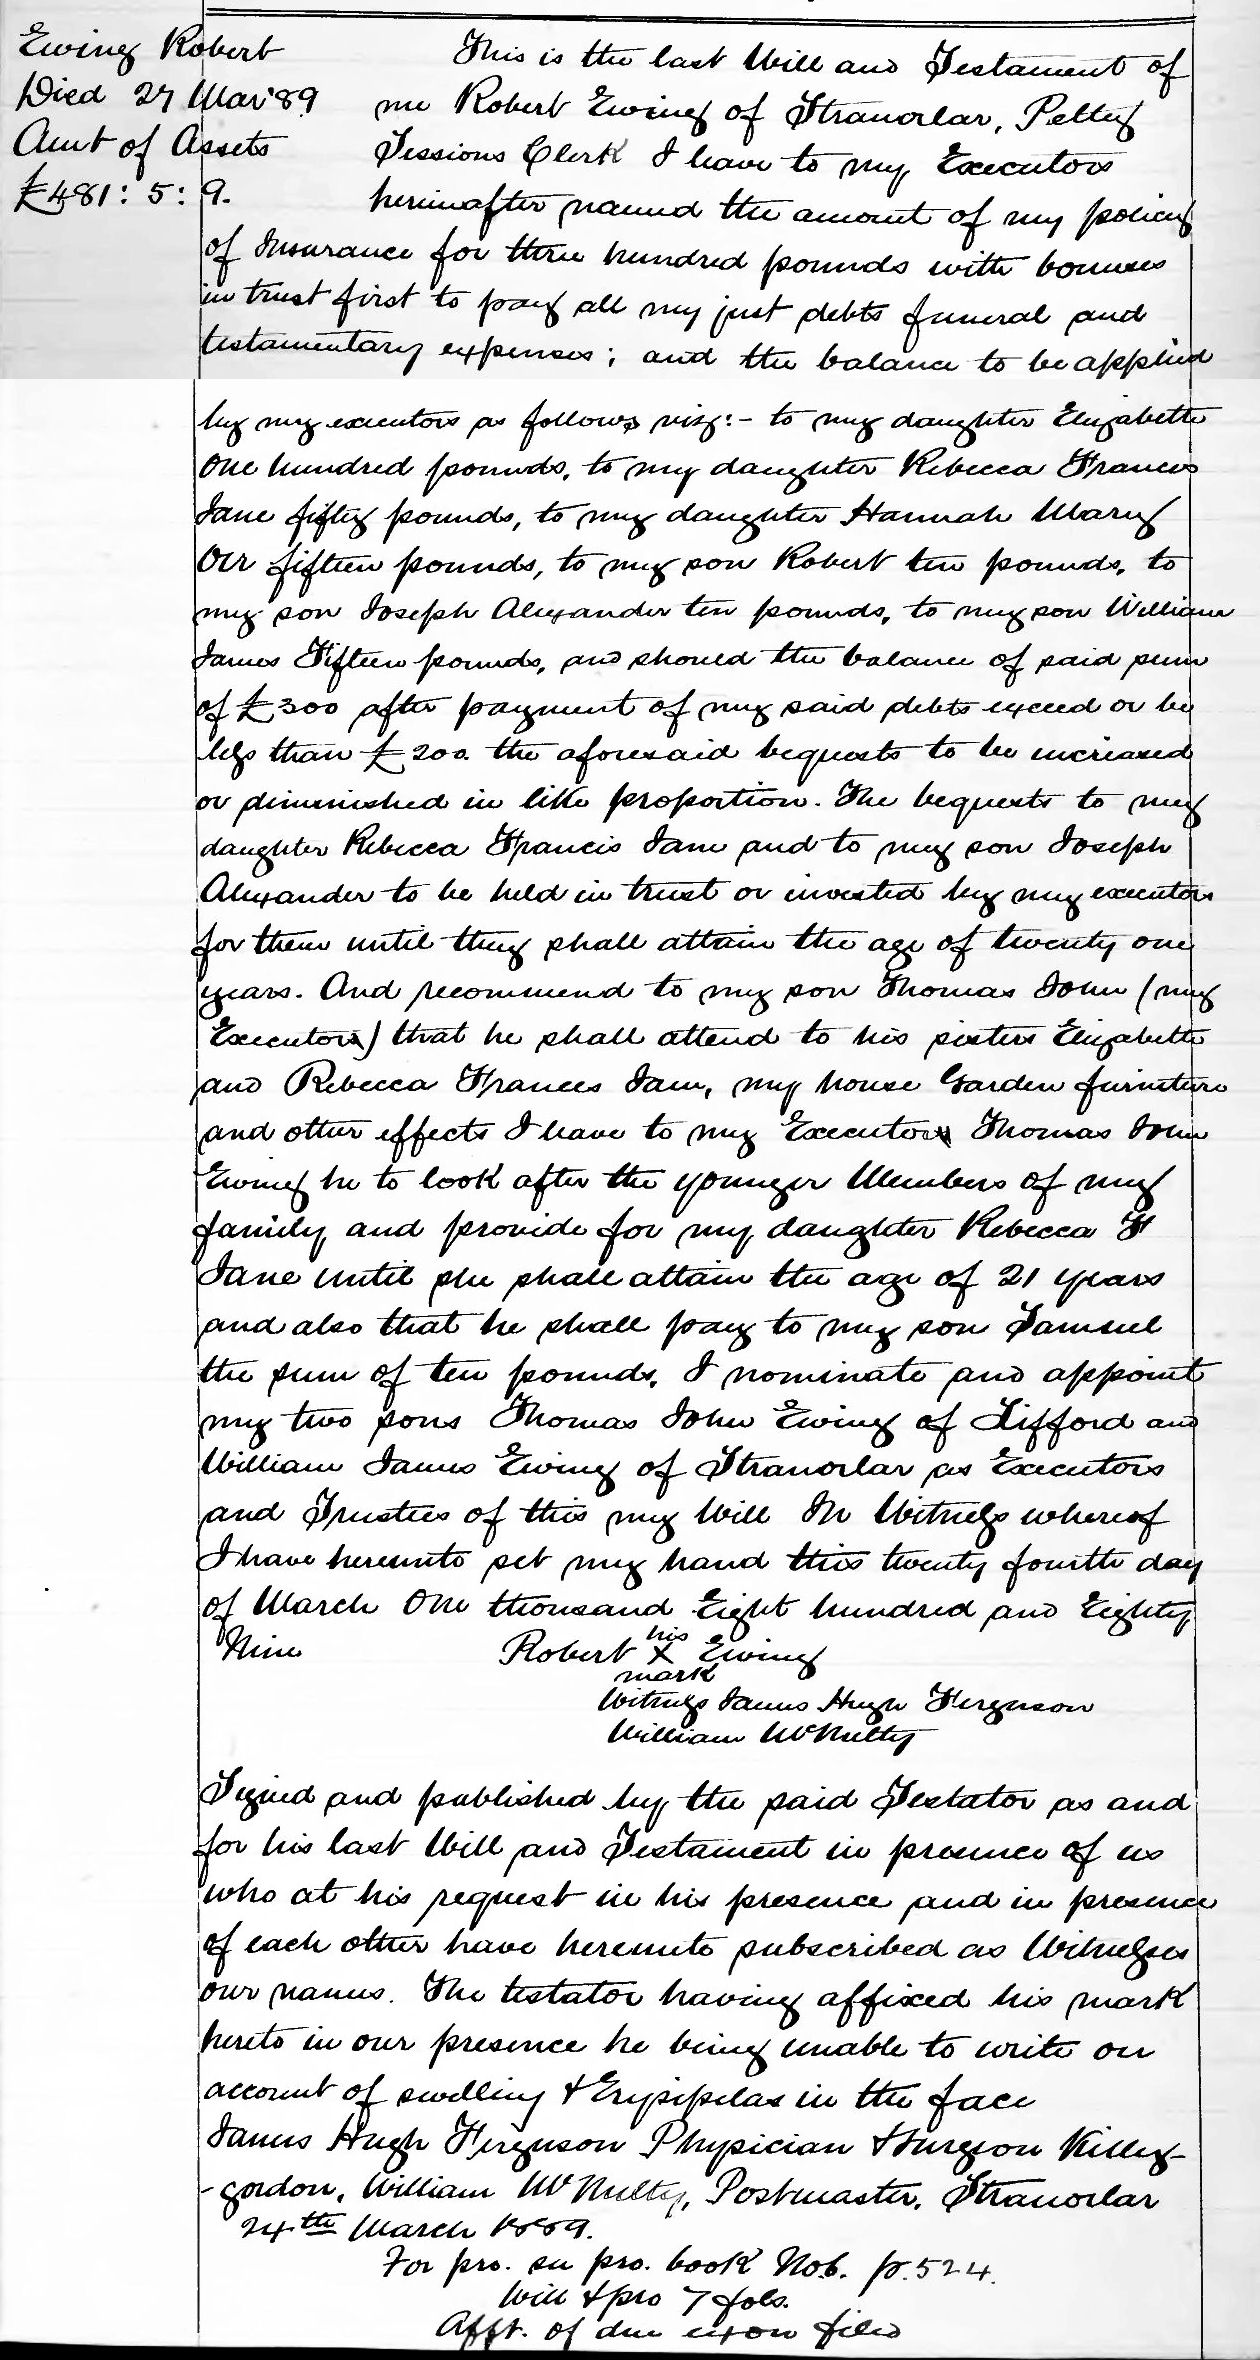 Ewing Robert
Died 27 Mar '89
Amt of Assets
£481 : 5 : 9.
This is the last Will and Testament of
me Robert Ewing of Stranorlar, Petty
Sessions Clerk I leave to my Executors
hereinafter named the amount of my policy
of Insurance for three hundred pounds with bonuses
in trust first to pay all my just debts funeral and
testamentary expenses ; and the balance to be applied
by my executors as follows viz:- to my daughter Elizabeth
One hundred pounds, to my daughter Rebecca Frances
Jane fifty pounds, to my daughter Hannah Mary
Orr fifteen pounds, to my son Robert ten pounds, to
my son Joseph Alexander ten pounds, to my son William
James Fifteen pounds, and should the balance of said sum
of £300 after payment of my said debts exceed or be
less than £200. the aforesaid bequests to be increased
or diminished in like proportion. The bequests to my
daughter Rebecca Francis Jane and to my son Joseph
Alexander to be held in trust or invested by my executors
for them until they shall attain the age of twenty one
years. And recommend to my son Thomas John (my
Executor) that he shall attend to his sisters Elizabeth
and Rebecca Frances Jane, my house Garden furniture
and other effects I leave to my Executor Thomas John
Ewing he to look after the younger Members of my
family and provide for my daughter Rebecca F
Jane until she shall attain the age of 21 years
and also that he shall pay to my son Samuel
the sum of ten pounds. I nominate and appoint
my two sons Thomas John Ewing of Lifford and
William James Ewing of Stranorlar as Executors
and Trustees of this my Will In Witness whereof
I have hereunto set my hand this twenty fourth day
of March One thousand Eight hundred and Eighty
Nine Robert his X Ewing
mark
Witness James Hugh Ferguson
William McNulty
Signed and published by the said Testator as and
for his last Will and Testament in presence of us
who at his request in his presence and in presence
of each other have hereunto subscribed as Witnesses
our names. The testator having affixed his mark
hereto in our presence he being unable to write on
account of swelling & Erysipelas in the face
James Hugh Ferguson Physician & Surgeon Killy-
- gordon, William McNulty, Postmaster, Stranorlar
24th March 1889.
For pro. see pro. book No6. p. 524.
Will & pro 7 fols.
Afft. of due exon filed